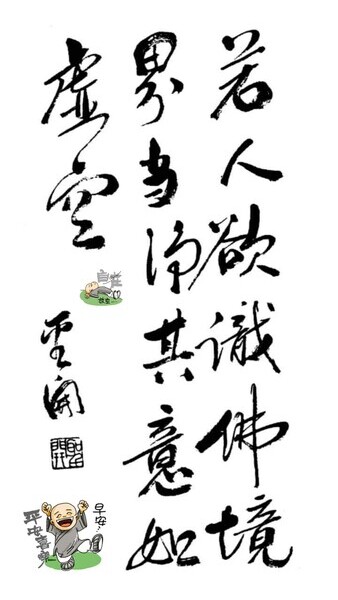 若人欲識佛境
界当净其意如
虚空
自在
放空
早安~
平安喜樂